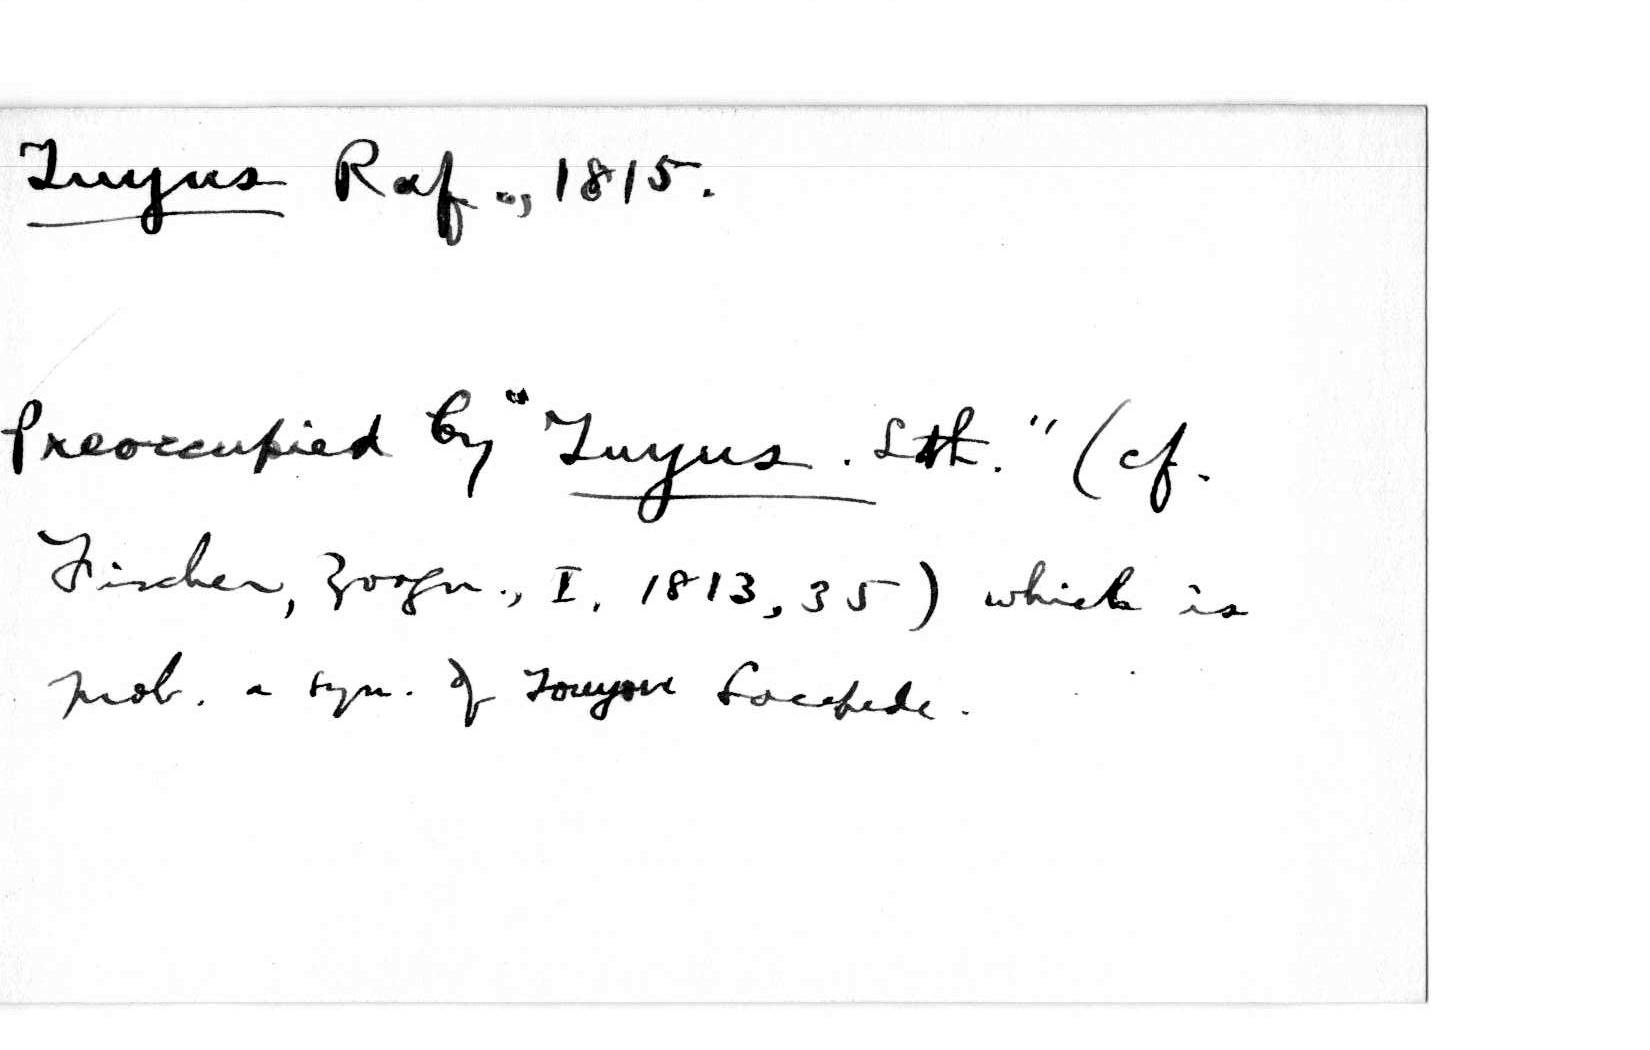 Tuyus Raf., 1815.
Preoccupied by "Tuyus. Lth." (cf.
Fischer, Zoogn., I, 1813, 35) which is
prob. a syn. of Touyou Lacepede.